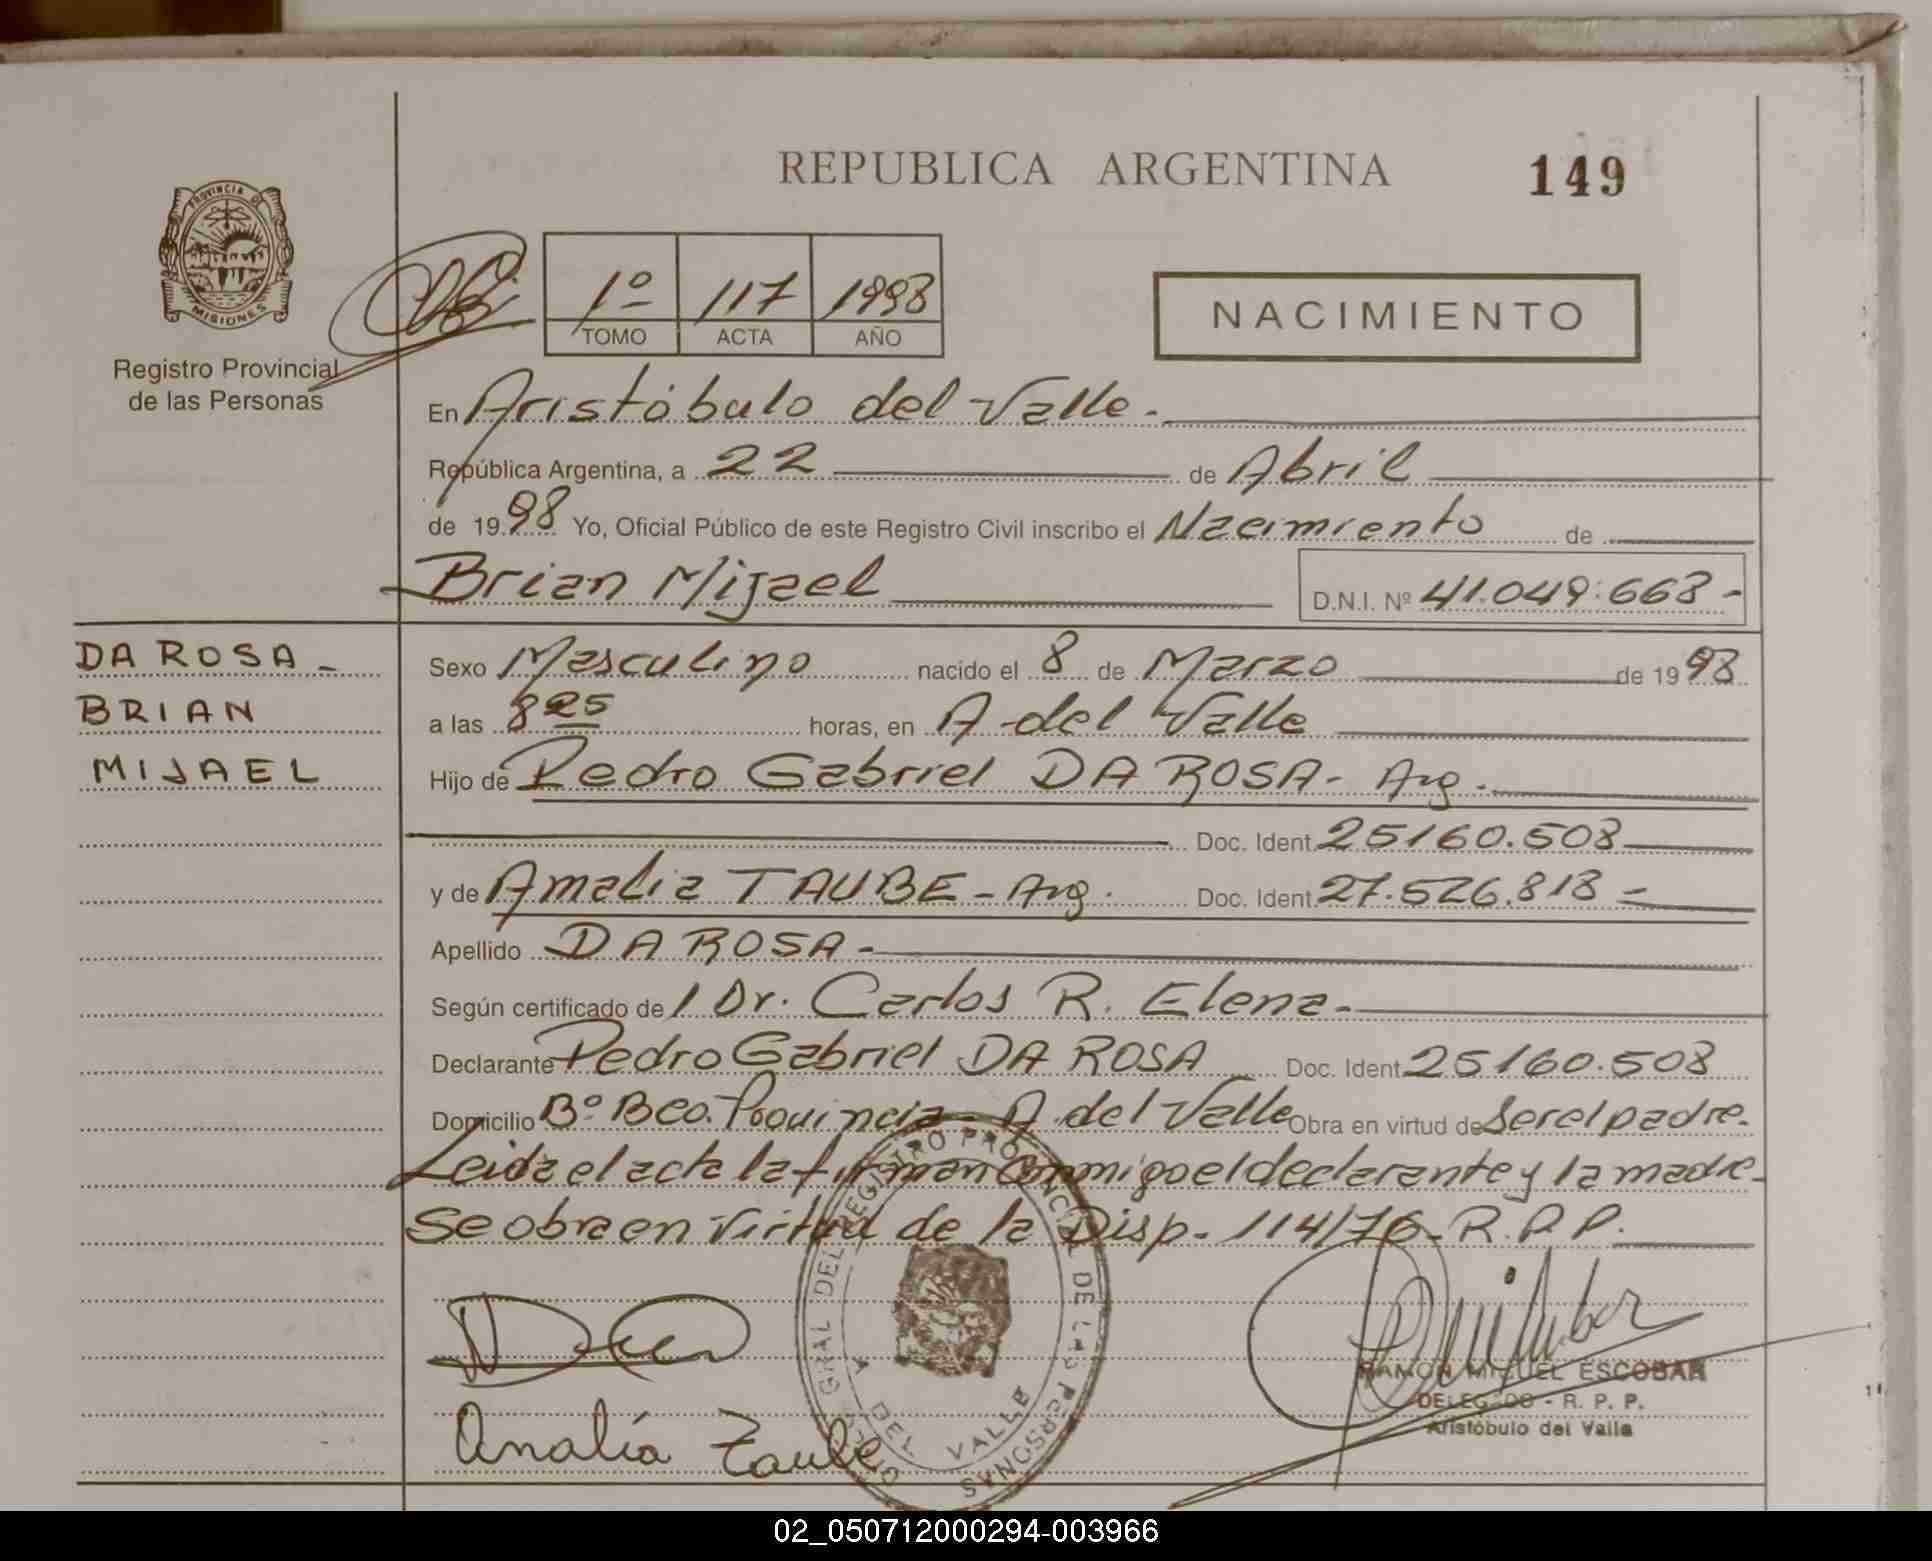 REPUBLICA ARGENTINA
149
PROVINCIA DE
MISIONES
Registro Provincial
de las Personas
1º 117 1998
TOMO ACTA AÑO
NACIMIENTO
En Aristóbulo del Valle.
República Argentina, a 22 de Abril
de 1998 Yo, Oficial Público de este Registro Civil inscribo el Nacimiento de
Brian Mijael D.N.I. Nº 41.049.663-
DA ROSA -
BRIAN
MIJAEL
Sexo Masculino nacido el 8 de Marzo de 1998
a las 8 25 horas, en A. del Valle
Hijo de Pedro Gabriel DA ROSA - Arg.
Doc. Ident. 25160.508
y de Amalia TAUBE - Arg. Doc. Ident. 27.526.818 -
Apellido DA ROSA -
Según certificado de / Dr. Carlos R. Elena -
Declarante Pedro Gabriel DA ROSA Doc. Ident. 25160.508
Domicilio Bº Bco. Provincia - A. del Valle Obra en virtud de Ser el padre.
Leida el acta la firman conmigo el declarante y la madre -
Se obra en virtud de la Disp. 114/76 - R.P.P.
OFIC. GRAL DEL REGISTRO PROVINCIAL DE LAS PERSONAS
A DEL VALLE
Analía Taube
RAMON MIGUEL ESCOBAR
DELEGADO - R. P. P.
Aristóbulo del Valle
02_050712000294-003966